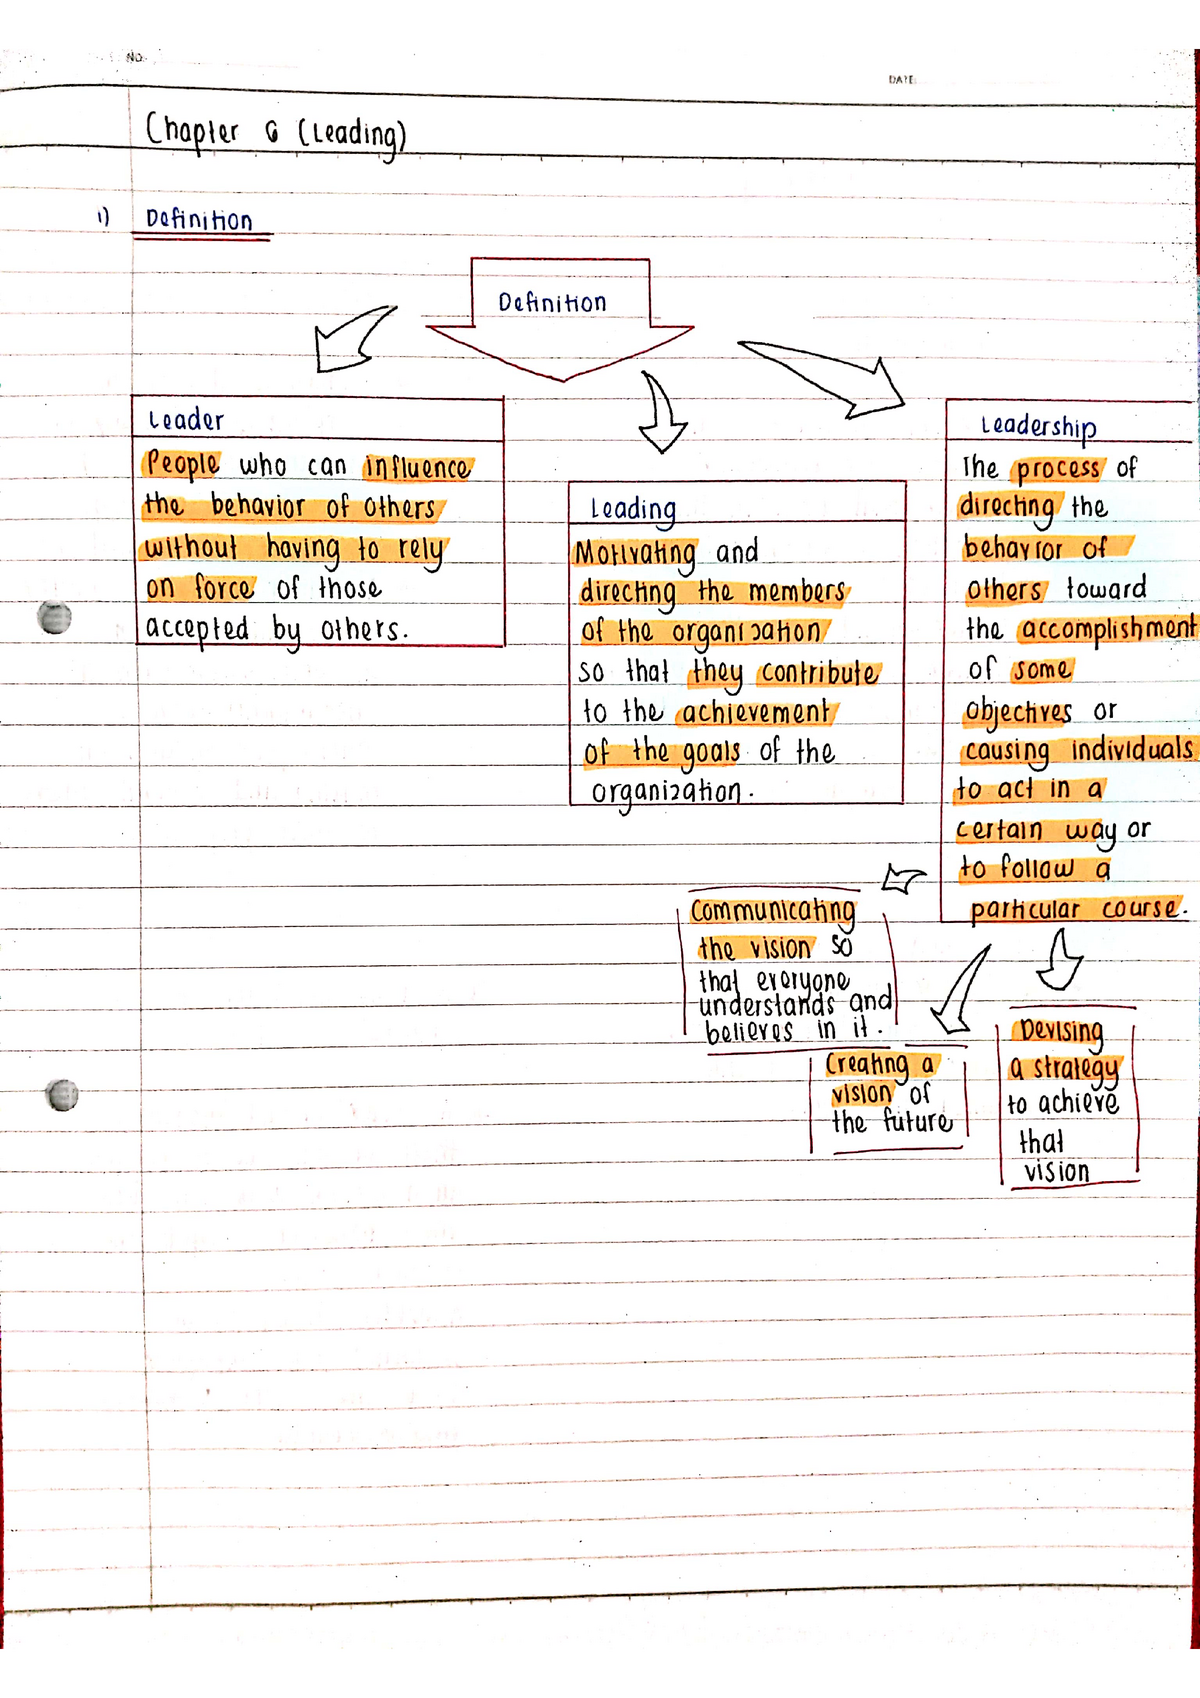 NO.
DATE:
Chapter 6 (Leading)
1) Definition
Definition
Leader
People who can influence
the behavior of others
without having to rely
on force of those
accepted by others.
Leading
Motivating and
directing the members
of the organization
so that they contribute
to the achievement
of the goals of the
organization.
Leadership
The process of
directing the
behavior of
others toward
the accomplishment
of some
objectives or
causing individuals
to act in a
certain way or
to follow a
particular course.
Communicating
the vision so
that everyone
understands and
believes in it.
Creating a
vision of
the future
Devising
a strategy
to achieve
that
vision